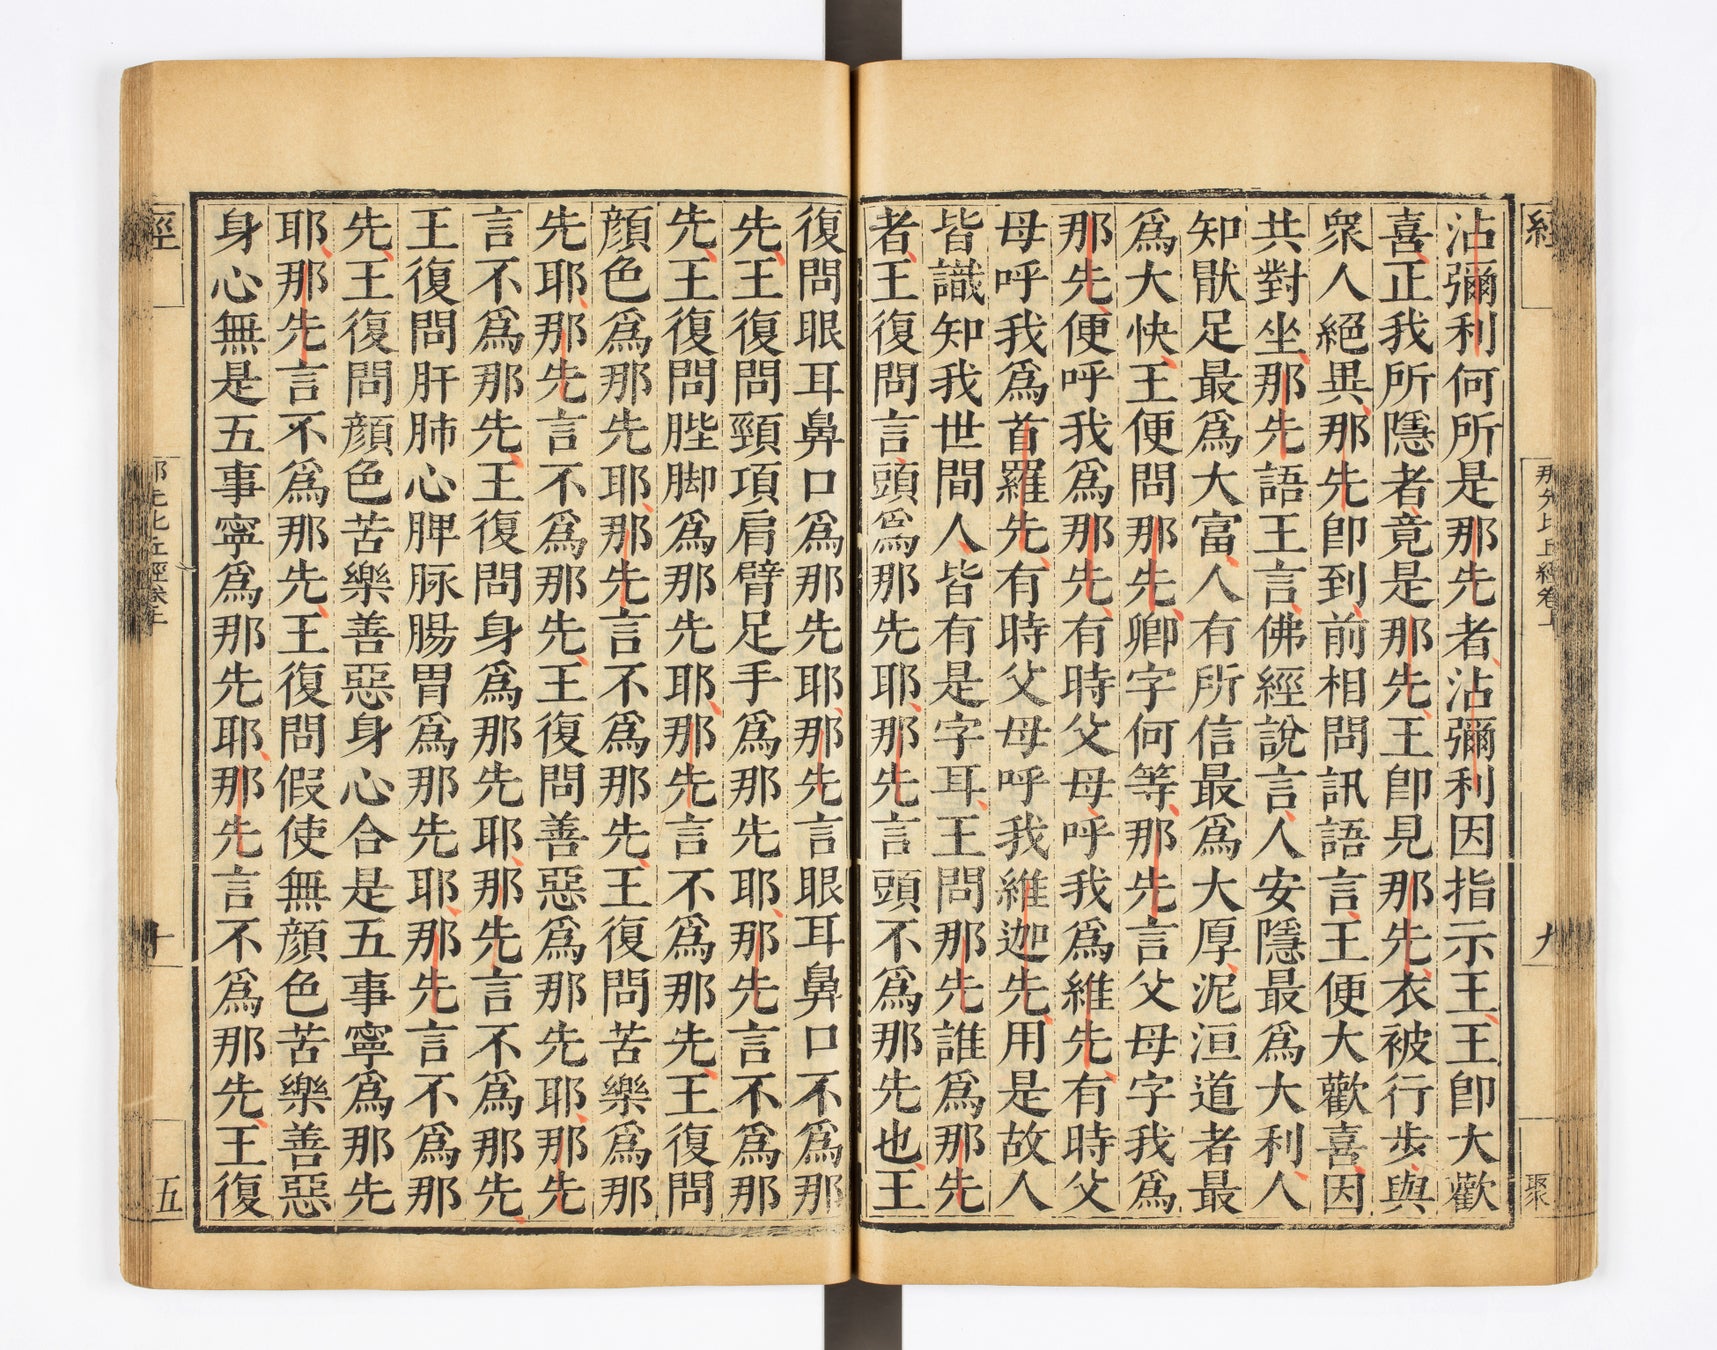 經
那先比丘經卷上
九
聚
沾彌利何所是那先者沾彌利因指示王王卽大歡
喜正我所隱者竟是那先王卽見那先衣被行步與
衆人絕異那先卽到前相問訊語言王便大歡喜因
共對坐那先語王言佛經說言人安隱最爲大利人
知猒足最爲大富人有所信最爲大厚泥洹道者最
爲大快王便問那先卿字何等那先言父母字我爲
那先便呼我爲那先有時父母呼我爲維先有時父
母呼我爲首羅先有時父母呼我維迦先用是故人
皆識知我世間人皆有是字耳王問那先誰爲那先
者王復問言頭爲那先耶那先言頭不爲那先也王
復問眼耳鼻口爲那先耶那先言眼耳鼻口不爲那
先王復問頸項肩臂足手爲那先耶那先言不爲那
先王復問髀脚爲那先耶那先言不爲那先王復問
顔色爲那先耶那先言不爲那先王復問苦樂爲那
先耶那先言不爲那先王復問善惡爲那先耶那先
言不爲那先王復問身爲那先耶那先言不爲那先
王復問肝肺心脾脉腸胃爲那先耶那先言不爲那
先王復問顔色苦樂善惡身心合是五事寧爲那先
耶那先言不爲那先王復問假使無顔色苦樂善惡
身心無是五事寧爲那先耶那先言不爲那先王復
經
那先比丘經卷上
十
五